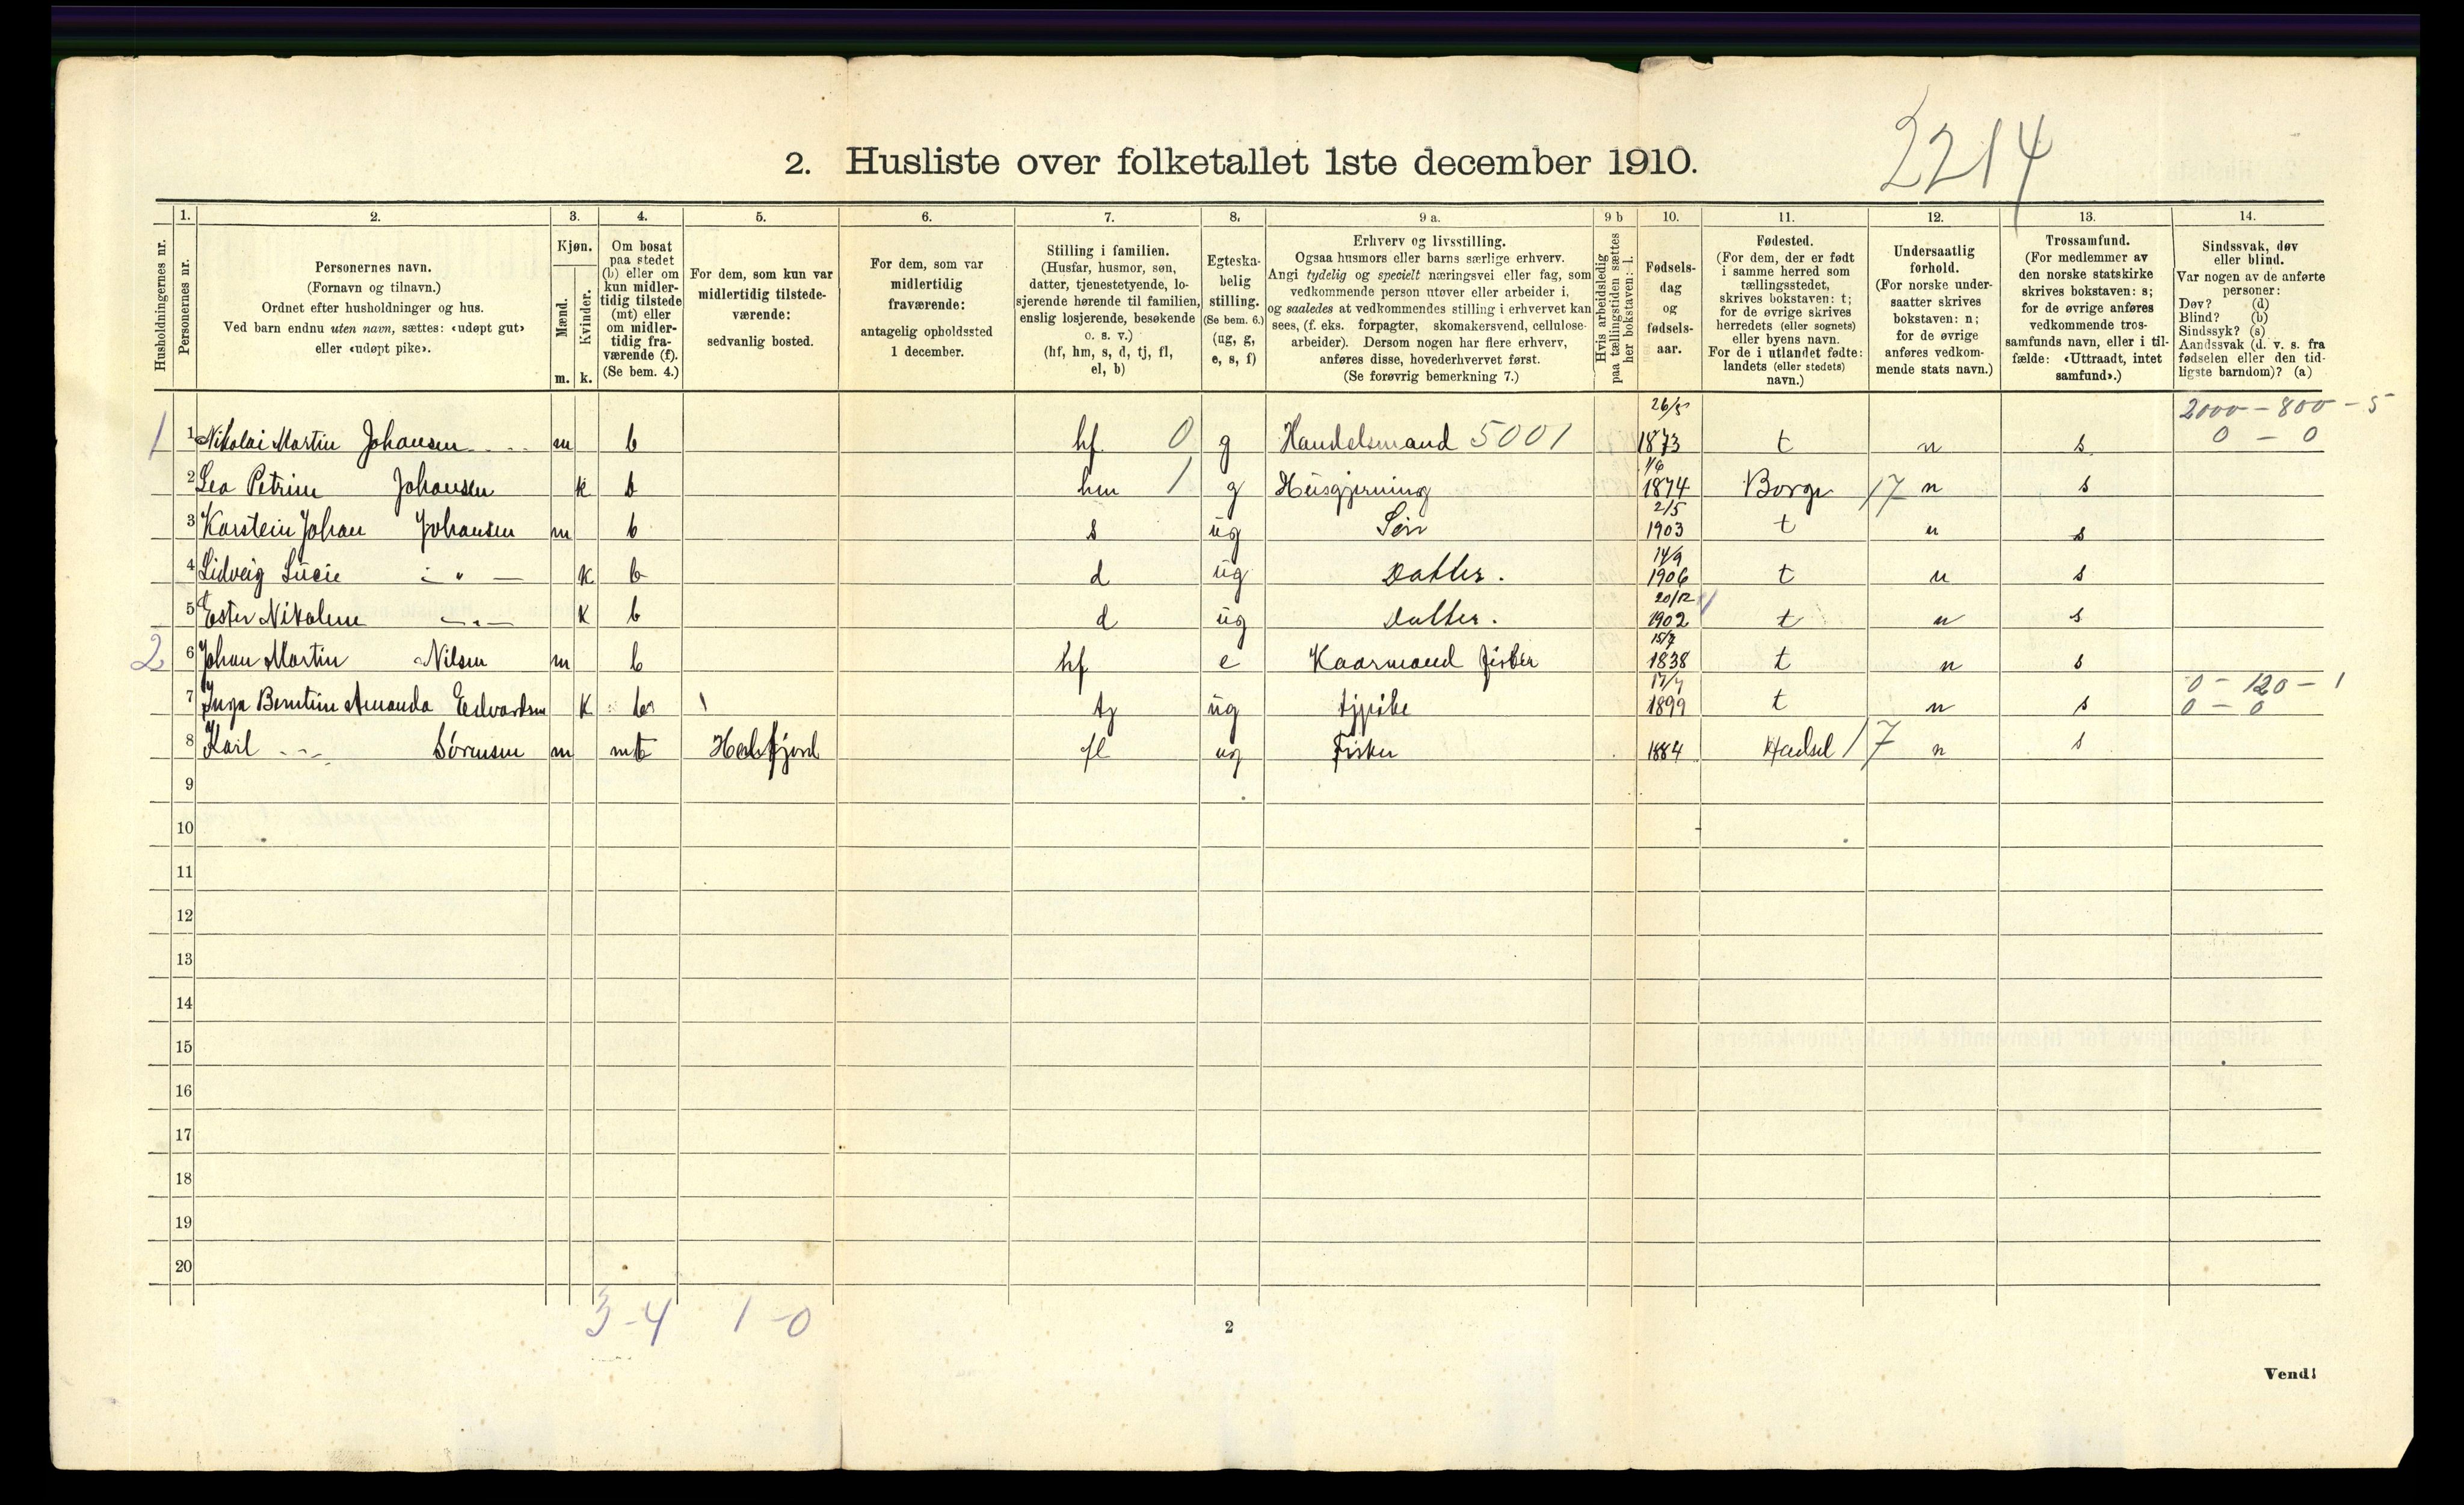 2214
2. Husliste over folketallet 1ste december 1910.
Husholdningernes nr.
1.
Personernes nr.
2.
Personernes navn.
(Fornavn og tilnavn.)
Ordnet efter husholdninger og hus.
Ved barn endnu uten navn, sættes: «udøpt gut»
eller «udøpt pike».
3.
Kjøn.
Mænd.
Kvinder.
m. k.
4.
Om bosat
paa stedet
(b) eller om
kun midler-
tidig tilstede
(mt) eller
om midler-
tidig fra-
værende (f).
(Se bem. 4.)
5.
For dem, som kun var
midlertidig tilstede-
værende:
sedvanlig bosted.
6.
For dem, som var
midlertidig
fraværende:
antagelig opholdssted
1 december.
7.
Stilling i familien.
(Husfar, husmor, søn,
datter, tjenestetyende, lo-
sjerende hørende til familien,
enslig losjerende, besøkende
o. s. v.)
(hf, hm, s, d, tj, fl,
el, b)
8.
Egteska-
belig
stilling.
(Se bem. 6.)
(ug, g,
e, s, f)
9 a.
Erhverv og livsstilling.
Ogsaa husmors eller barns særlige erhverv.
Angi tydelig og specielt næringsvei eller fag, som
vedkommende person utøver eller arbeider i,
og saaledes at vedkommendes stilling i erhvervet kan
sees, (f. eks. forpagter, skomakersvend, cellulose-
arbeider). Dersom nogen har flere erhverv,
anføres disse, hovederhvervet først.
(Se forøvrig bemerkning 7.)
9 b
Hvis arbeidsledig
paa tællingstiden sættes
her bokstaven: l.
10.
Fødsels-
dag
og
fødsels-
aar.
11.
Fødested.
(For dem, der er født
i samme herred som
tællingsstedet,
skrives bokstaven: t;
for de øvrige skrives
herredets (eller sognets)
eller byens navn.
For de i utlandet fødte:
landets (eller stedets)
navn.)
12.
Undersaatlig
forhold.
(For norske under-
saatter skrives
bokstaven: n;
for de øvrige
anføres vedkom-
mende stats navn.)
13.
Trossamfund.
(For medlemmer av
den norske statskirke
skrives bokstaven: s;
for de øvrige anføres
vedkommende tros-
samfunds navn, eller i til-
fælde: «Uttraadt, intet
samfund».)
14.
Sindssvak, døv
eller blind.
Var nogen av de anførte
personer:
Døv? (d)
Blind? (b)
Sindssyk? (s)
Aandssvak (d. v. s. fra
fødselen eller den tid-
ligste barndom)? (a)
26/5 2000 - 800 - 5
1 1 Nikolai Martin Johansen m b hf 0 g Handelsmand 5001 1873 t n s 0 - 0
1/6
2 Lea Petrine Johansen k b hm 1 g Husgjerning 1874 Borge 17 n s
2/5
3 Karstein Johan Johansen m b s ug Søn 1903 t n s
14/9
4 Lidveig Lucie - " - k b d ug Datter. 1906 t n s
20/12
5 Ester Nikoline - " - k b d ug Datter. 1902 t n s
15/7
2 6 Johan Martin Nilsen m b hf e Kaarmand fisker 1838 t n s
17/7 0 - 120 - 1
7 Inga Berntine Amanda Edvardsen k b tj ug tjpike 1899 t n s 0 - 0
8 Karl Sørensen m mt fl ug Fisker 1884 Hadsel 17 n s
9
10
11
12
13
14
15
16
17
18
19
20
3-4 1-0
2
Vend!